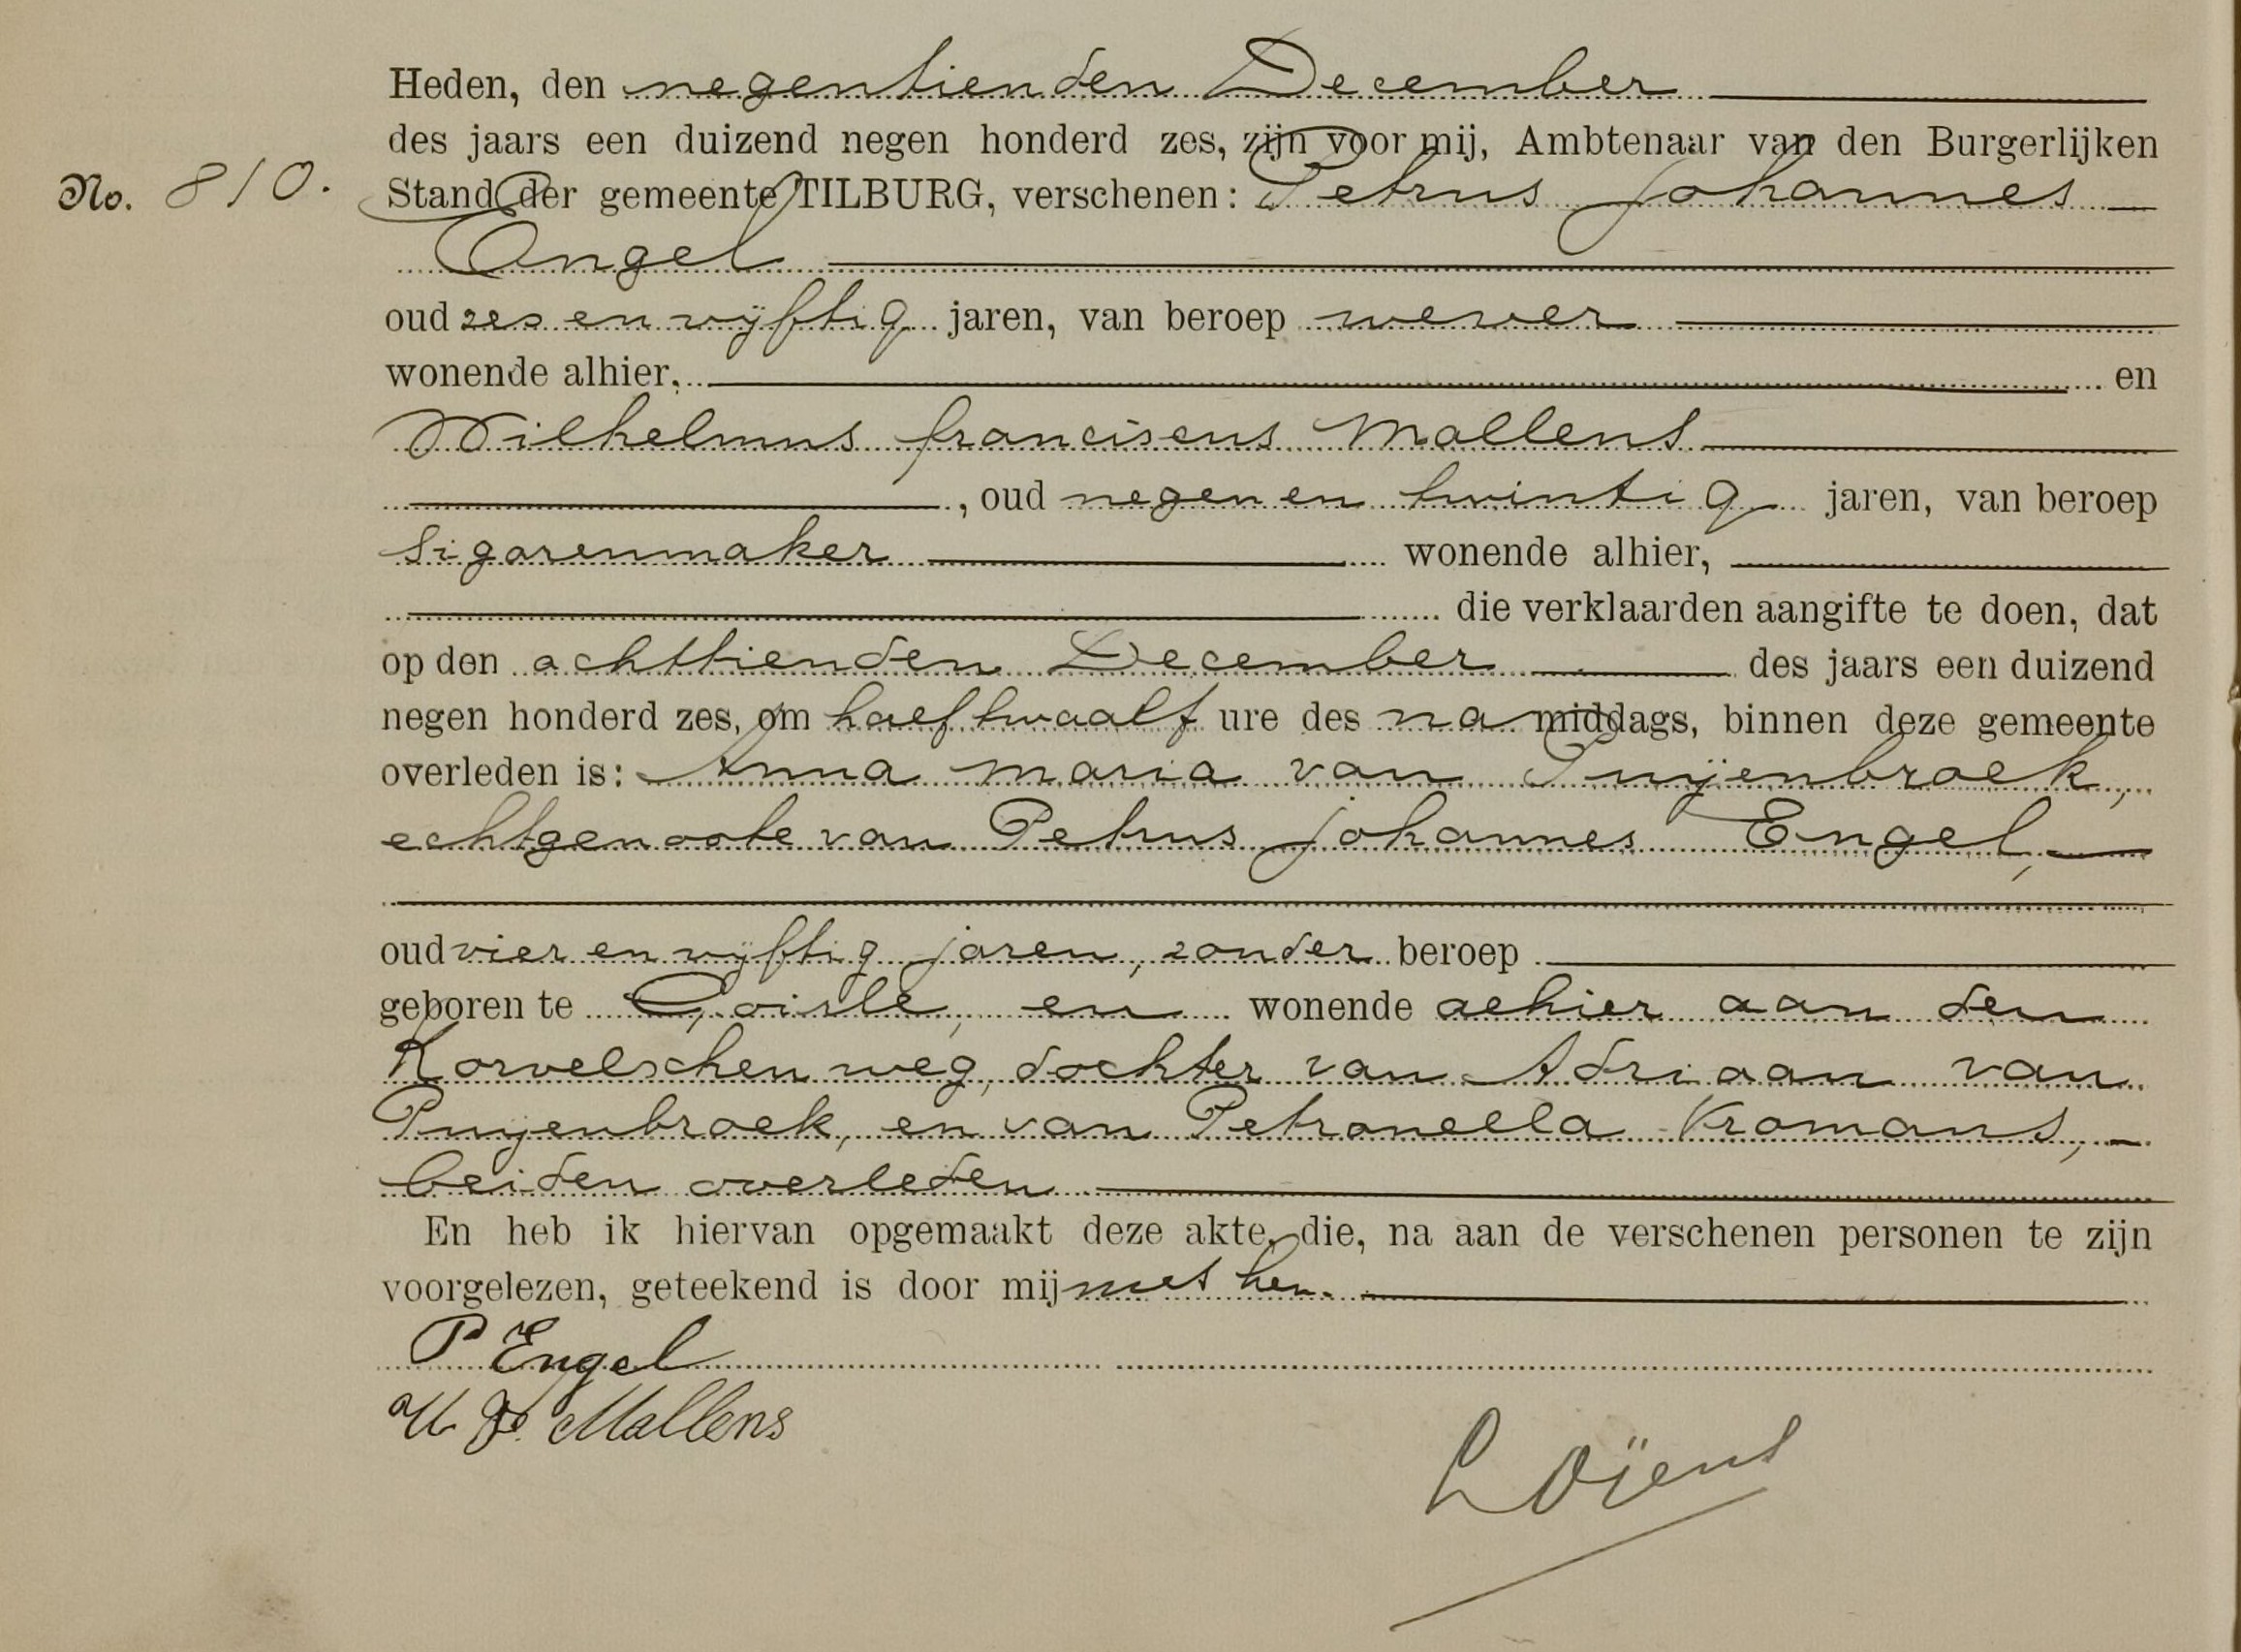 Heden, den negentienden December
des jaars een duizend negen honderd zes, zijn voor mij, Ambtenaar van den Burgerlijken
No. 810. Stand der gemeente TILBURG, verschenen: Petrus Johannes
Engel
oud zes en vijftig jaren, van beroep wever
wonende alhier, en
Wilhelmus franciscus Mallens
, oud negen en twintig jaren, van beroep
sigarenmaker wonende alhier,
die verklaarden aangifte te doen, dat
op den achttienden December des jaars een duizend
negen honderd zes, om half twaalf ure des na middags, binnen deze gemeente
overleden is: Anna maria van Puijenbroek,
echtgenoote van Petrus Johannes Engel,
oud vier en vijftig jaren, zonder beroep
geboren te Goirle, en wonende alhier aan den
Korvelschen weg, dochter van Adriaan van
Puijenbroek, en van Petronella Vromans,
beiden overleden
En heb ik hiervan opgemaakt deze akte, die, na aan de verschenen personen te zijn
voorgelezen, geteekend is door mij met hen.
P Engel
W F. Mallens
Loïens